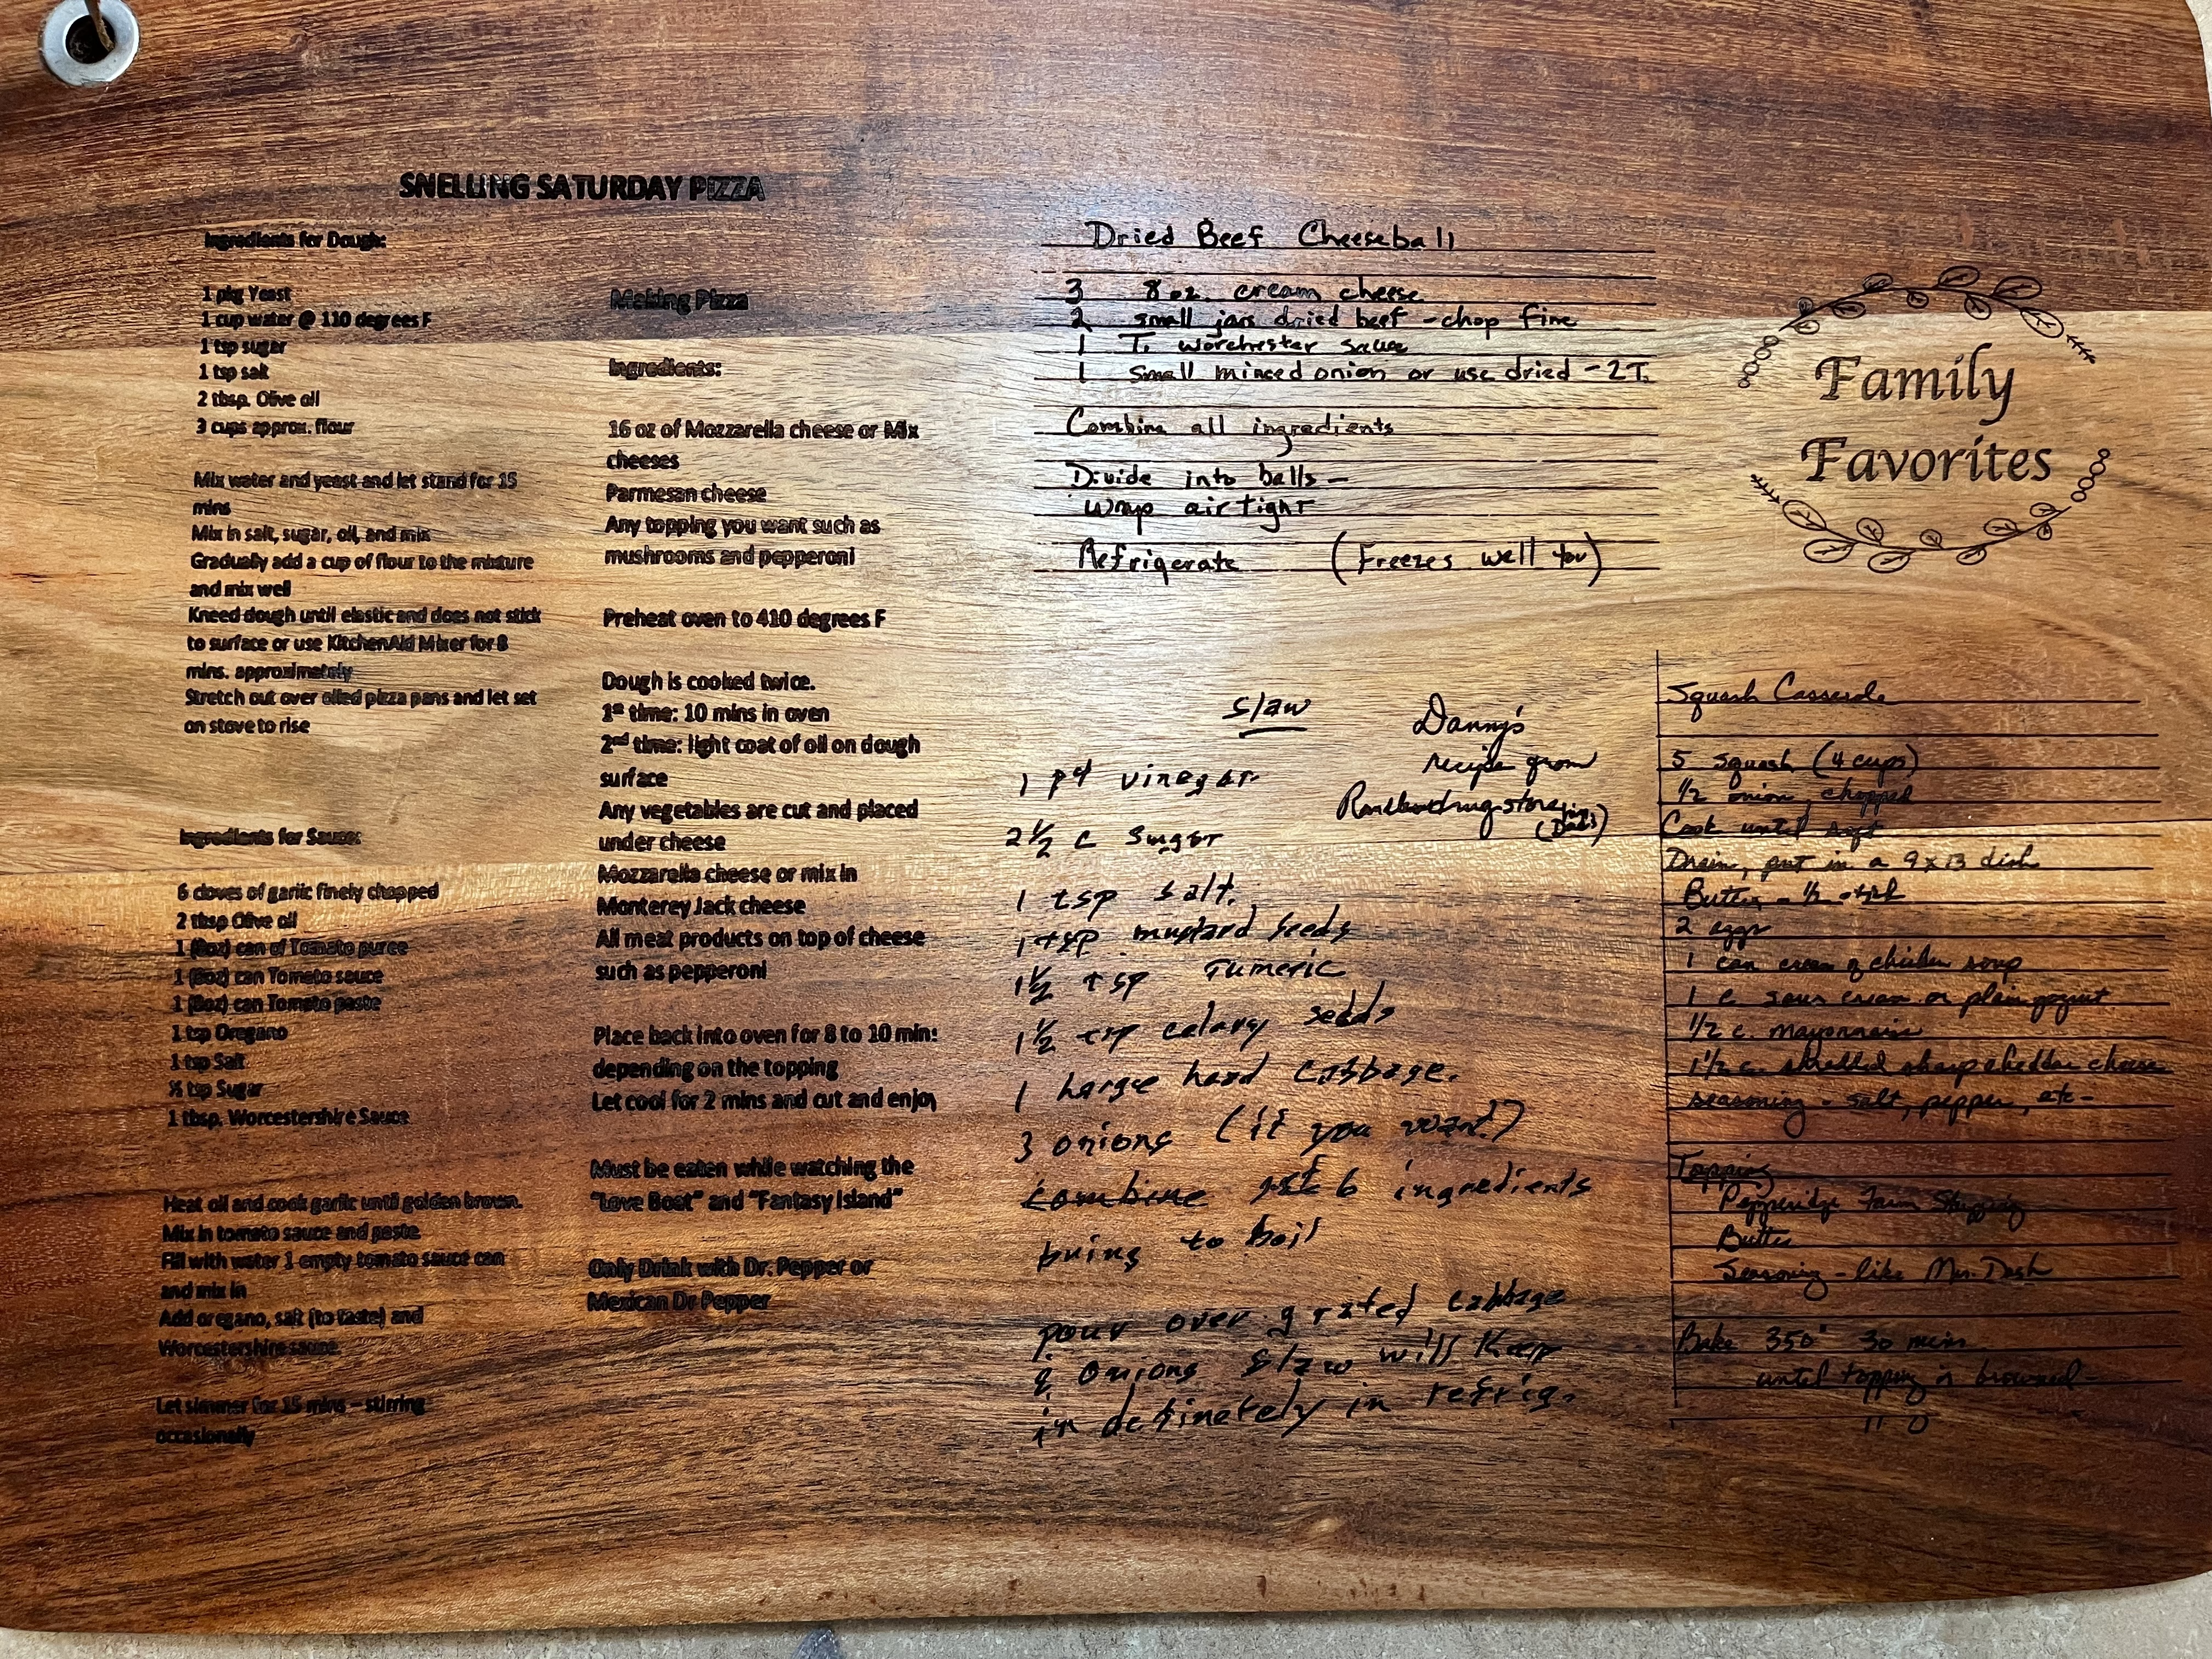 SNELLING SATURDAY PIZZA
Ingredients for Dough:
1 pkg Yeast
1 cup water @ 110 degrees F
1 tsp sugar
1 tsp salt
2 tbsp. Olive oil
3 cups approx. flour
Mix water and yeast and let stand for 15
mins
Mix in salt, sugar, oil, and mix
Gradually add a cup of flour to the mixture
and mix well
Kneed dough until elastic and does not stick
to surface or use KitchenAid Mixer for 8
mins. approximately
Stretch out over oiled pizza pans and let set
on stove to rise
Ingredients for Sauce:
6 cloves of garlic finely chopped
2 tbsp Olive oil
1 (8oz) can of Tomato puree
1 (8oz) can Tomato sauce
1 (8oz) can Tomato paste
1 tsp Oregano
1 tsp Salt
½ tsp Sugar
1 tbsp. Worcestershire Sauce
Heat oil and cook garlic until golden brown.
Mix in tomato sauce and paste
Fill with water 1 empty tomato sauce can
and mix in
Add oregano, salt (to taste) and
Worcestershire sauce.
Let simmer for 15 mins – stirring
occasionally
Making Pizza
Ingredients:
16 oz of Mozzarella cheese or Mix
cheeses
Parmesan cheese
Any topping you want such as
mushrooms and pepperoni
Preheat oven to 410 degrees F
Dough is cooked twice.
1st time: 10 mins in oven
2nd time: light coat of oil on dough
surface
Any vegetables are cut and placed
under cheese
Mozzarella cheese or mix in
Monterey Jack cheese
All meat products on top of cheese
such as pepperoni
Place back into oven for 8 to 10 min:
depending on the topping
Let cool for 2 mins and cut and enjoy
Must be eaten while watching the
"Love Boat" and "Fantasy Island"
Only Drink with Dr. Pepper or
Mexican Dr Pepper
Dried Beef Cheeseball
3 8 oz. cream cheese
2 small jars dried beef - chop fine
1 T. worchester sauce
1 small minced onion or use dried - 2T.
Combine all ingredients
Divide into balls -
Wrap air tight
Refrigerate (Freezes well too)
Slaw
Danny's
recipe from
drug store
(Dad's)
1 pt vinegar
2½ c sugar
1 tsp salt.
1 tsp mustard seeds
1½ tsp Tumeric
1½ tsp celary sedds
1 large head cabbage.
3 onions (if you want)
combine 1st 6 ingredients
bring to boil
pour over grated cabbage
& onions slaw will keep
indefinetely in refrig.
Family
Favorites
Squash Casserole
5 squash (4 cups)
1/2 onion, chopped
Cook until soft
Drain, put in a 9x13 dish
Butter - ½ stick
2 eggs
1 can cream of chicken soup
1 c. sour cream or plain yogurt
1/2 c. mayonnaise
1 1/2 c. shredded sharp cheddar cheese
seasoning - salt, pepper, etc -
Topping
Pepperidge Farm Stuffing
Butter
Seasoning - like Mrs. Dash
Bake 350° 30 mins
until topping is browned -